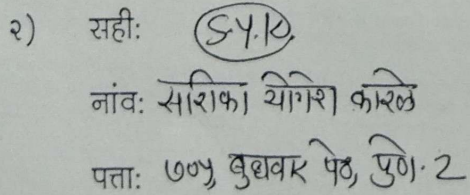 २) सही: S.Y.K.
नांव: सारिका योगेश कारले
पत्ता: ७०५, बुधवार पेठ, पुणे. 2